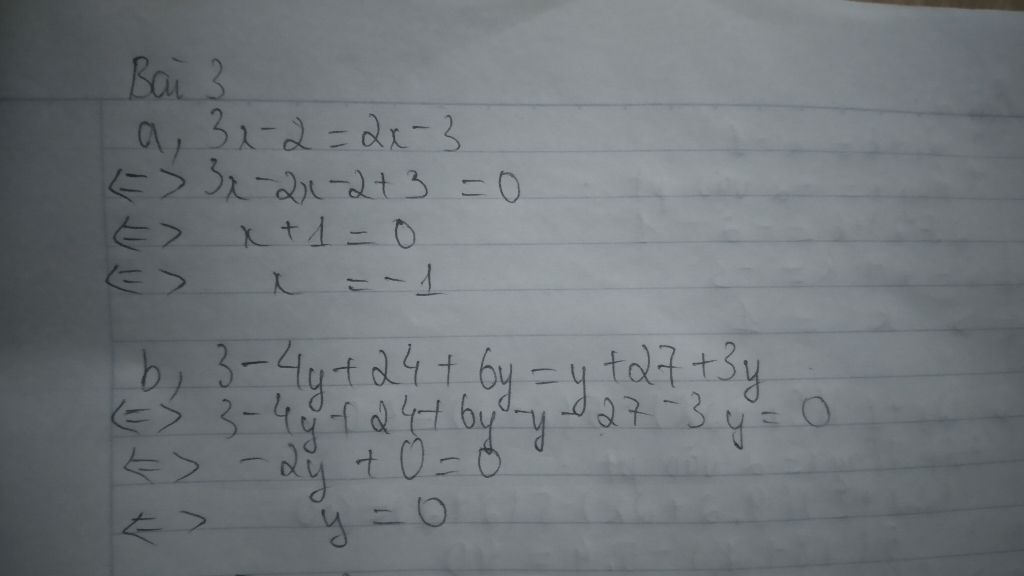 Bài 3
a, 3x-2=2x-3
<=> 3x-2x-2+3 =0
<=> x+1=0
<=> x =-1
b, 3-4y+24+6y=y+27+3y
<=> 3-4y+24+6y-y-27-3y=0
<=> -2y+0=0
<=> y=0